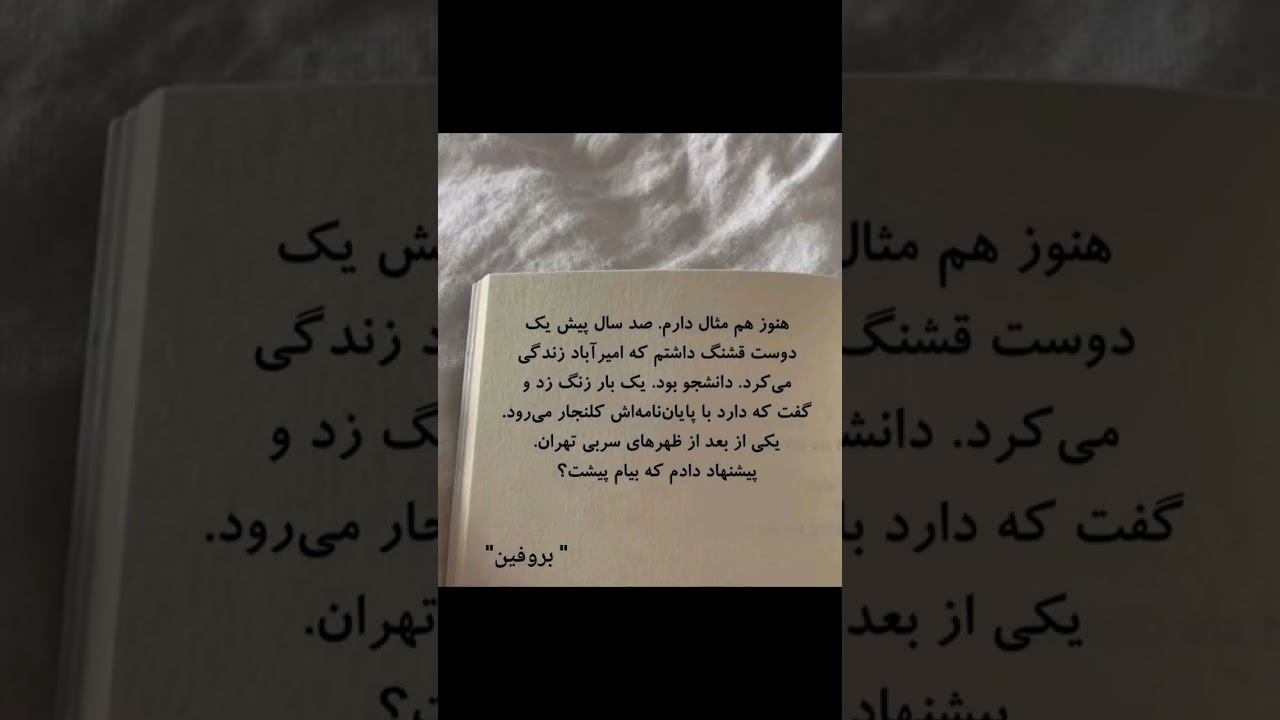 هنوز هم مثال دارم. صد سال پیش یک
دوست قشنگ داشتم که امیرآباد زندگی
می‌کرد. دانشجو بود. یک بار زنگ زد و
گفت که دارد با پایان‌نامه‌اش کلنجار می‌رود.
یکی از بعد از ظهرهای سربی تهران.
پیشنهاد دادم که بیام پیشت؟
" بروفین"